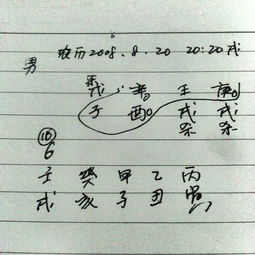 农历2008.8.20 20:20戌
男
戊 辛 壬 庚
子 酉 戌 戌
⑯
6
壬 癸 甲 乙 丙
戌 亥 子 丑 寅